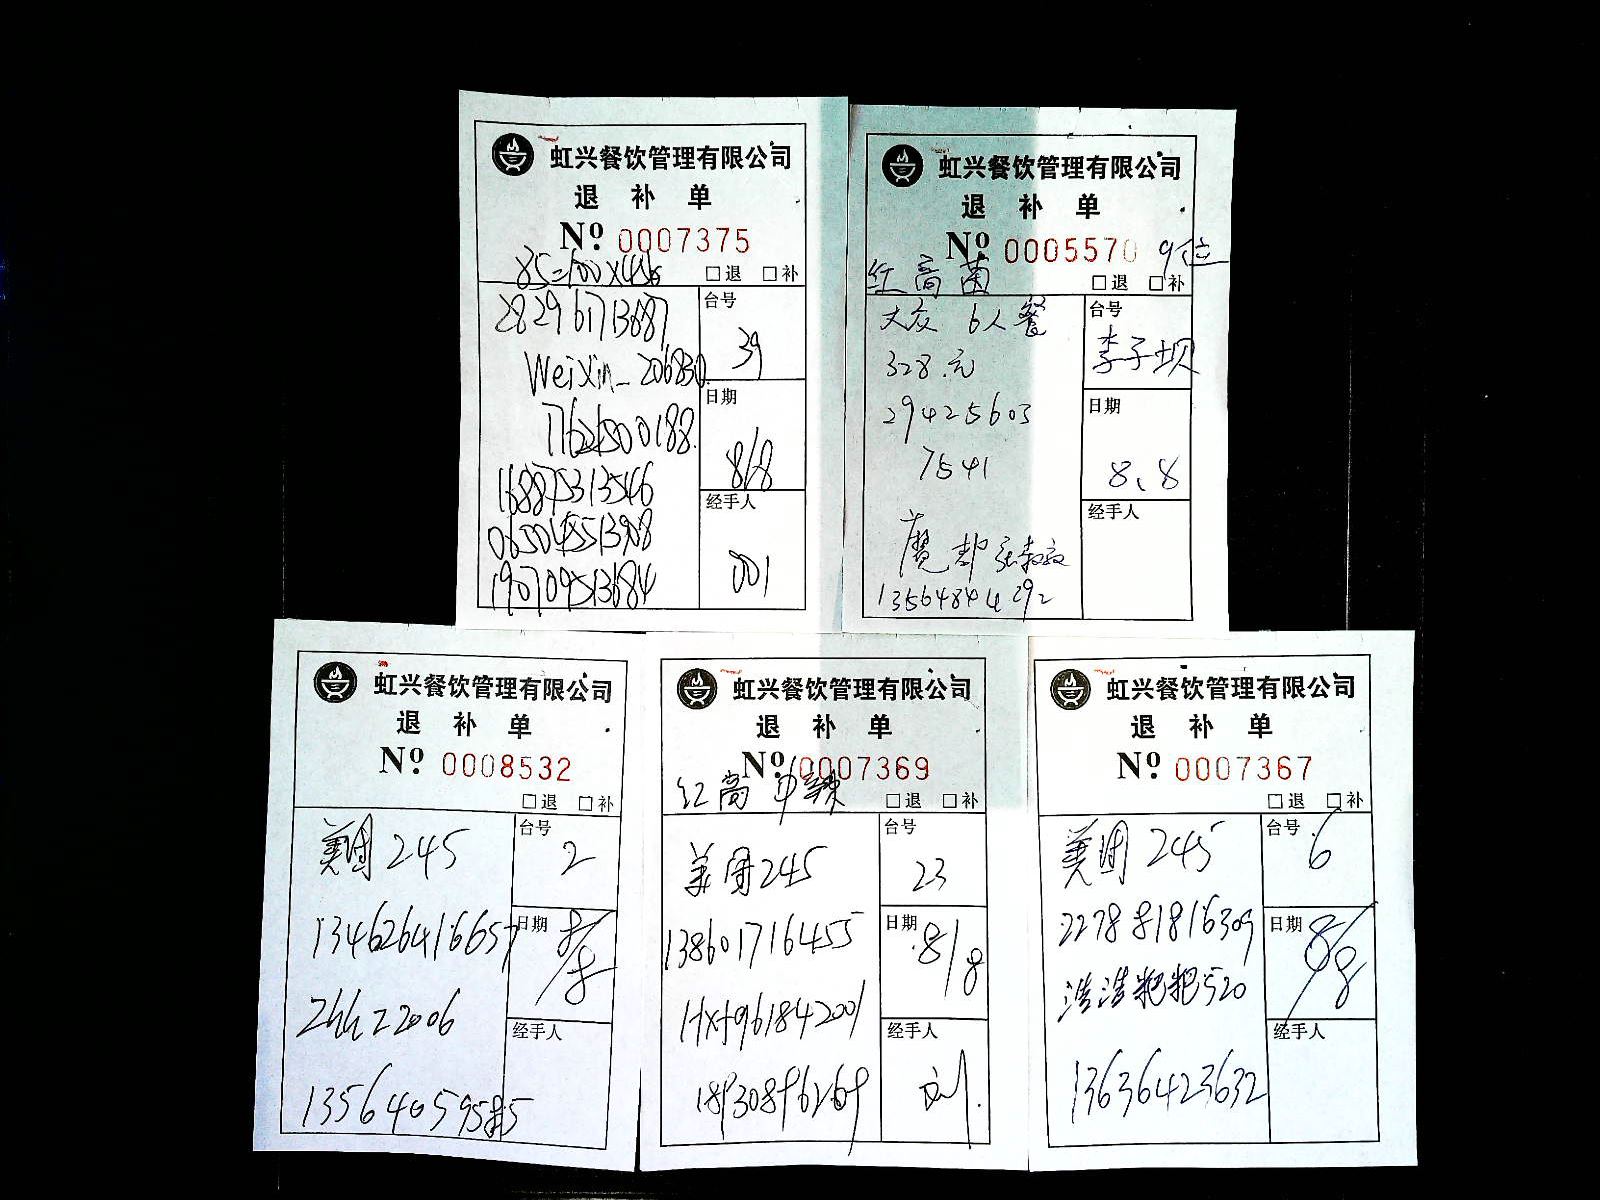 虹兴餐饮管理有限公司
退 补 单
Nº 0007375
85=100×4
□退 □补
282961713687
台号
39
WeiXin_206830
日期
17621500188
8/8
168875313546
经手人
065045513908
001
190709513684
虹兴餐饮管理有限公司
退 补 单
Nº 0005570 9位
红高菌
□退 □补
大众 6人餐
台号
李子坝
328.元
29425603
日期
7541
8、8
经手人
魔都
13564844292
虹兴餐饮管理有限公司
退 补 单
Nº 0008532
□退 □补
美团245
台号
2
134626416657
日期
8/8
Zhhz2006
经手人
13564059585
虹兴餐饮管理有限公司
退 补 单
Nº 0007369
红高中辣
□退 □补
美团245
台号
23
138601716455
日期
8/8
Hxf961842001
经手人
刘
18930896269
虹兴餐饮管理有限公司
退 补 单
Nº 0007367
□退 □补
美团245
台号
6
227881816309
日期
8/8
浩浩粑粑520
经手人
13636423632